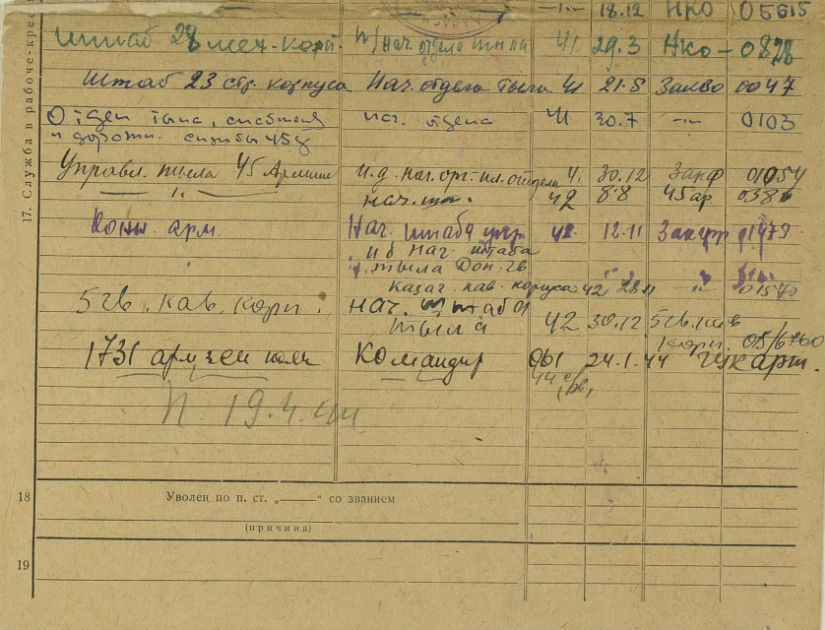 18.12 НКО 05615
штаб 28 мех. корп. нач. отдела тыла 41 29.3 НКО - 0828
Штаб 23 стр. корпуса Нач. отдела тыла 41 21.5 ЗакВО 0047
Отдел тыла, снабжения нач. отдела 41 30.7 -"- 0103
и дорожн. службы 45 А
Управл. тыла 45 Армии и.д. нач. орг. пл. отдела 41 30.12 Закф 01054
-"- нач. 42 8.8 45 ар
арм. Нач. штаба упр. 42 12.11 Закфр
и д Нач. штаба
тыла Дон. гв
казач. кав. корпуса 42 28.11 -"- 01570
5 гв. кав. корп. нач. штаба
тыла 42 30.12 5 гв. кав
корп. 05/6760
1731 арм. зен полк Командир 24.1.44 ГУК арт.
44
П. 19.4.44
17. Служба в рабоче-крес
18 Уволен по п. ст. „——“ со званием
(причина)
19